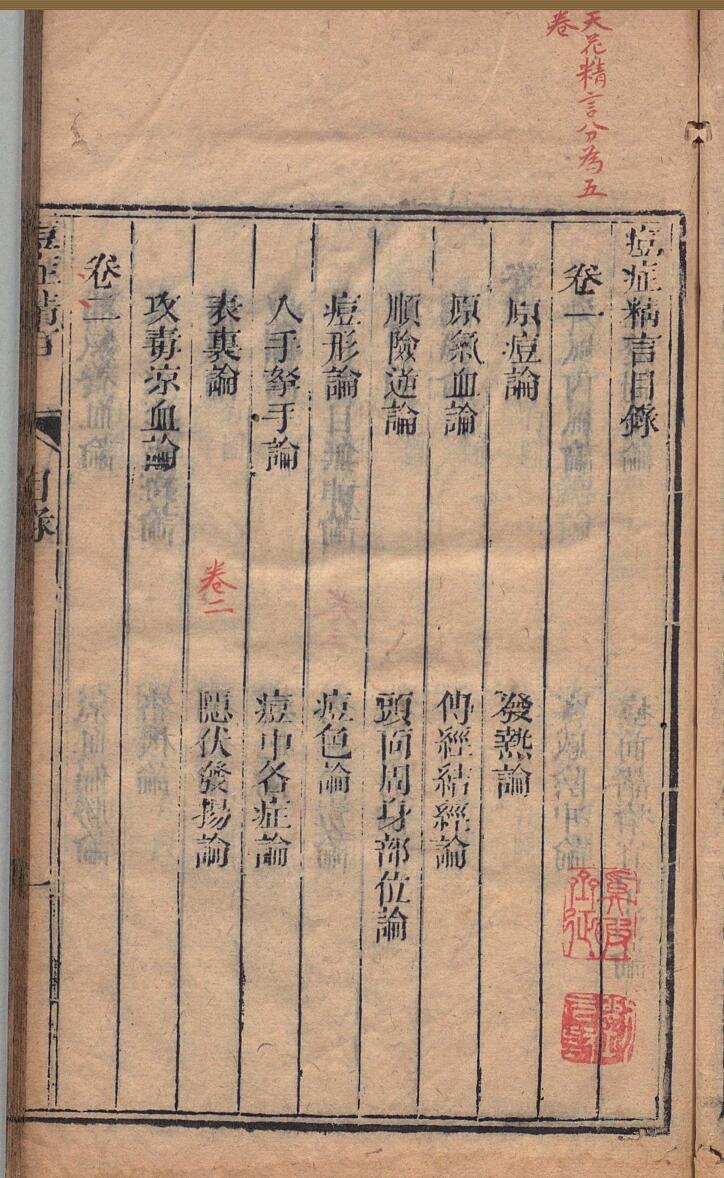 天花精言分為五
卷
痘症精言目錄
卷一
原痘論
發熱論
原氣血論
傳經結經論
順險逆論
頭面周身部位論
痘形論
痘色論
入手拏手論
痘中各症論
表裏論
卷二
隱伏發揚論
攻毒涼血論
卷二
痘症精言
目錄
一